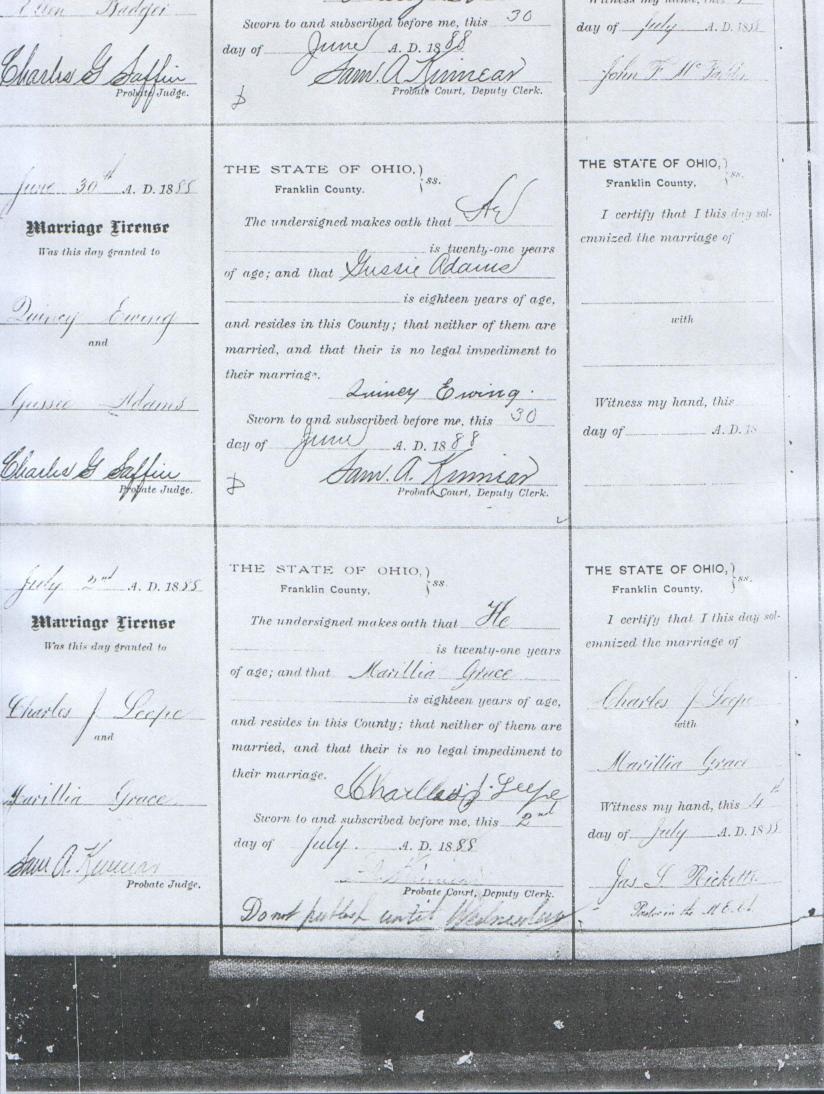 Ellen Badger
Charles G Saffin
Probate Judge.
Sworn to and subscribed before me, this 30
day of June A. D. 1888
Sam. A. Kinnear
Probate Court, Deputy Clerk.
Witness my hand, this
day of July A. D. 1888
John F. Mc
June 30th A. D. 1888
Marriage License
Was this day granted to
Quincy Ewing
and
Gussie Adams
Charles G Saffin
Probate Judge.
THE STATE OF OHIO, } ss.
Franklin County.
The undersigned makes oath that He
is twenty-one years
of age; and that Gussie Adams
is eighteen years of age,
and resides in this County; that neither of them are
married, and that their is no legal impediment to
their marriage.
Quincy Ewing.
Sworn to and subscribed before me, this 30
day of June A. D. 1888
Sam. A. Kinnear
Probate Court, Deputy Clerk.
THE STATE OF OHIO, } ss.
Franklin County.
I certify that I this day sol-
emnized the marriage of
with
Witness my hand, this
day of A. D. 18
July 2nd A. D. 1888
Marriage License
Was this day granted to
Charles J Leepe
and
Marillia Grace
Sam A. Kinnear
Probate Judge.
THE STATE OF OHIO, } ss.
Franklin County.
The undersigned makes oath that He
is twenty-one years
of age; and that Marillia Grace
is eighteen years of age,
and resides in this County; that neither of them are
married, and that their is no legal impediment to
their marriage.
Charles J Leepe
Sworn to and subscribed before me, this 2nd
day of July. A. D. 1888
Probate Court, Deputy Clerk.
Do not publish until Wednesday
THE STATE OF OHIO, } ss.
Franklin County.
I certify that I this day sol-
emnized the marriage of
Charles J Leepe
with
Marillia Grace
Witness my hand, this 4th
day of July A. D. 1888
Jas S. Ricketts
Pastor in the M. E. Ch.